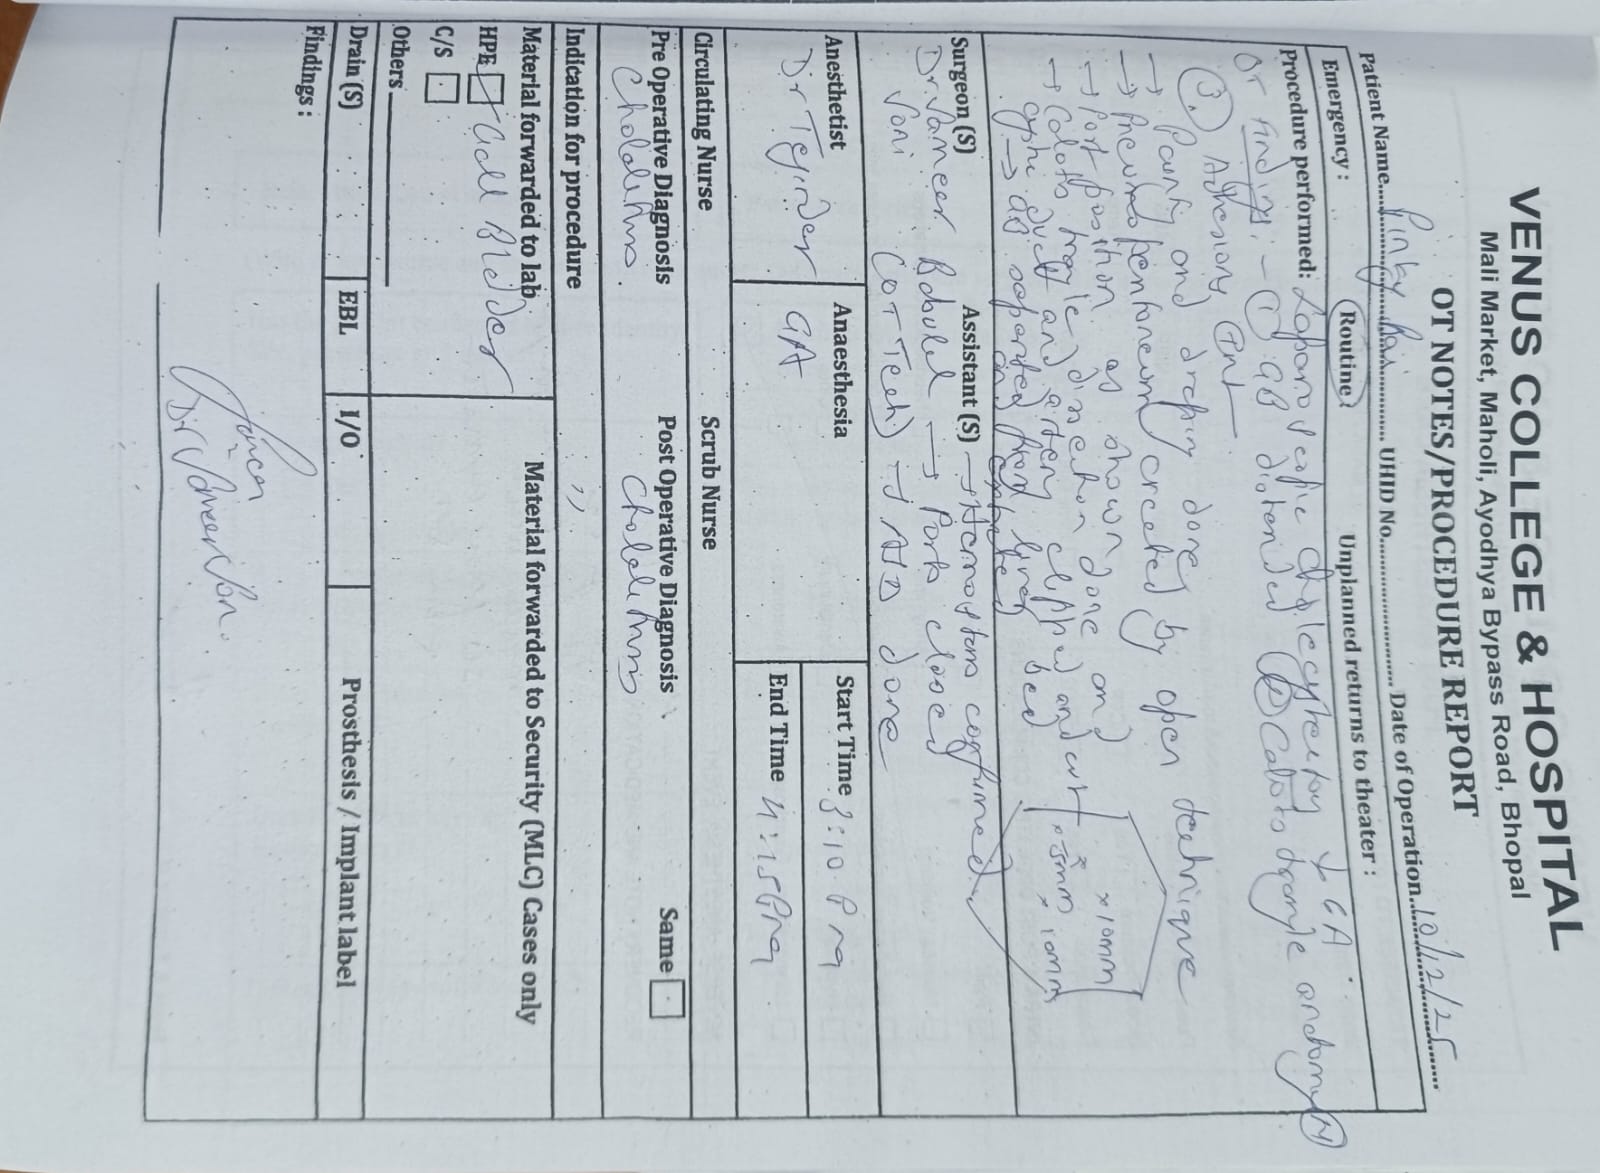 VENUS COLLEGE & HOSPITAL
Mali Market, Maholi, Ayodhya Bypass Road, Bhopal
OT NOTES/PROCEDURE REPORT
Patient Name Pinky Rai UHID No. Date of Operation 10/12/25
Emergency : Routine: Unplanned returns to theater :
Procedure performed: Laparoscopic cholecystectomy ↓ GA
OT findings :- ① GB distended ② Calots triangle anatomy (N)
③ Adhesions
→ Painting and draping done
→ Pneumoperitoneum created by open technique
→ Port position as shown done and
→ Calots triangle dissection
cystic duct and artery clipped and cut
→ GB separated from liver bed
x 10mm
x 5mm x 10mm
Surgeon (S) Assistant (S) → Hemostasis confirmed
Dr Vaneer Babulal → Ports closed
Soni (OT Tech) → ASD done
Anesthetist Anaesthesia Start Time 3:10 Pm
Dr Tejinder GA End Time 4:15 Pm
Circulating Nurse Scrub Nurse
Pre Operative Diagnosis Post Operative Diagnosis Same
Cholelithis Cholelithis
Indication for procedure ,,
Material forwarded to lab Material forwarded to Security (MLC) Cases only
HPE Gall Bladder
C/S
Others
Drain (S) EBL I/O Prosthesis / Implant label
Findings :